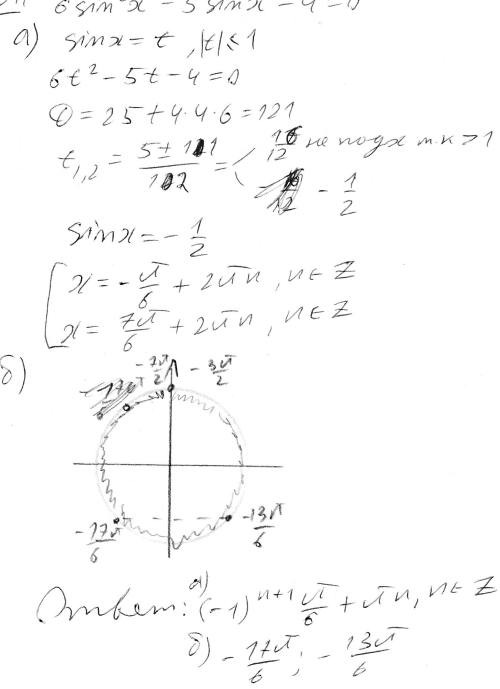 6 sin² x - 5 sin x - 4 = 0
а) sin x = t , |t| ≤ 1
6t² - 5t - 4 = 0
D = 25 + 4·4·6 = 121
t₁,₂ = (5 ± 11)/12 = < 16/12 не подх т.к > 1
- 1/2
sin x = - 1/2
[ x = - π/6 + 2πn , n ∈ Z
x = 7π/6 + 2πn , n ∈ Z
б)
- 7π/2 - 3π/2
- 17π/6 - 13π/6
Ответ: а) (-1)ⁿ⁺¹ π/6 + πn, n ∈ Z
б) - 17π/6 ; - 13π/6